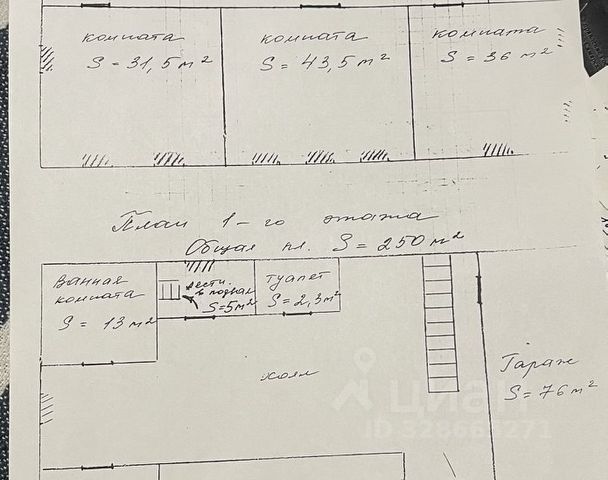 комната
S = 31,5 м²
комната
S = 43,5 м²
комната
S = 36 м²
План 1-го этажа
Общая пл. S = 250 м²
Ванная
комната
S = 13 м²
лестн.
в подвал
S=5м²
туалет
S = 2,3м²
холл
Гараж
S = 76 м²
циан